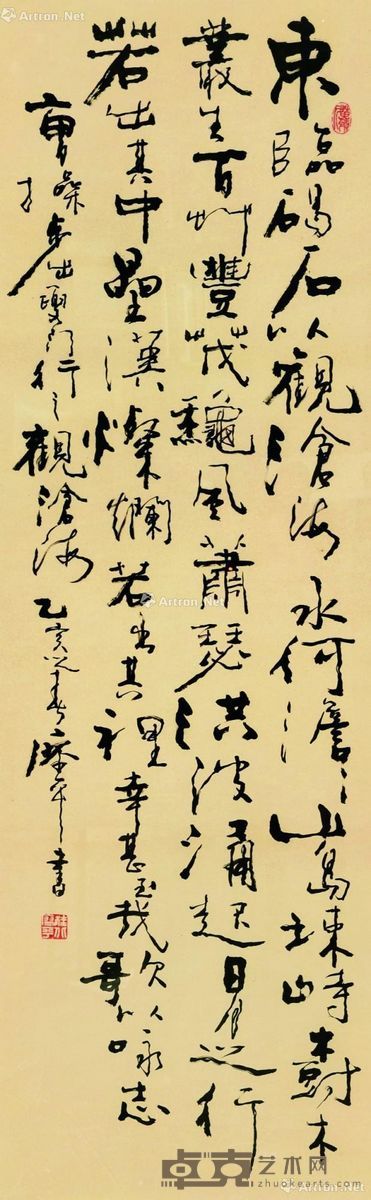 東臨碣石以觀滄海水何澹〻山島竦峙樹木
叢生百艸豐茂龝風蕭瑟洪波涌起日月之行
若出其中星漢燦爛若出其裡幸甚至哉歌以詠志
曹操步出夏門行之觀滄海 乙亥 書
Artron.Net
卓克艺术网
zhuokearts.com